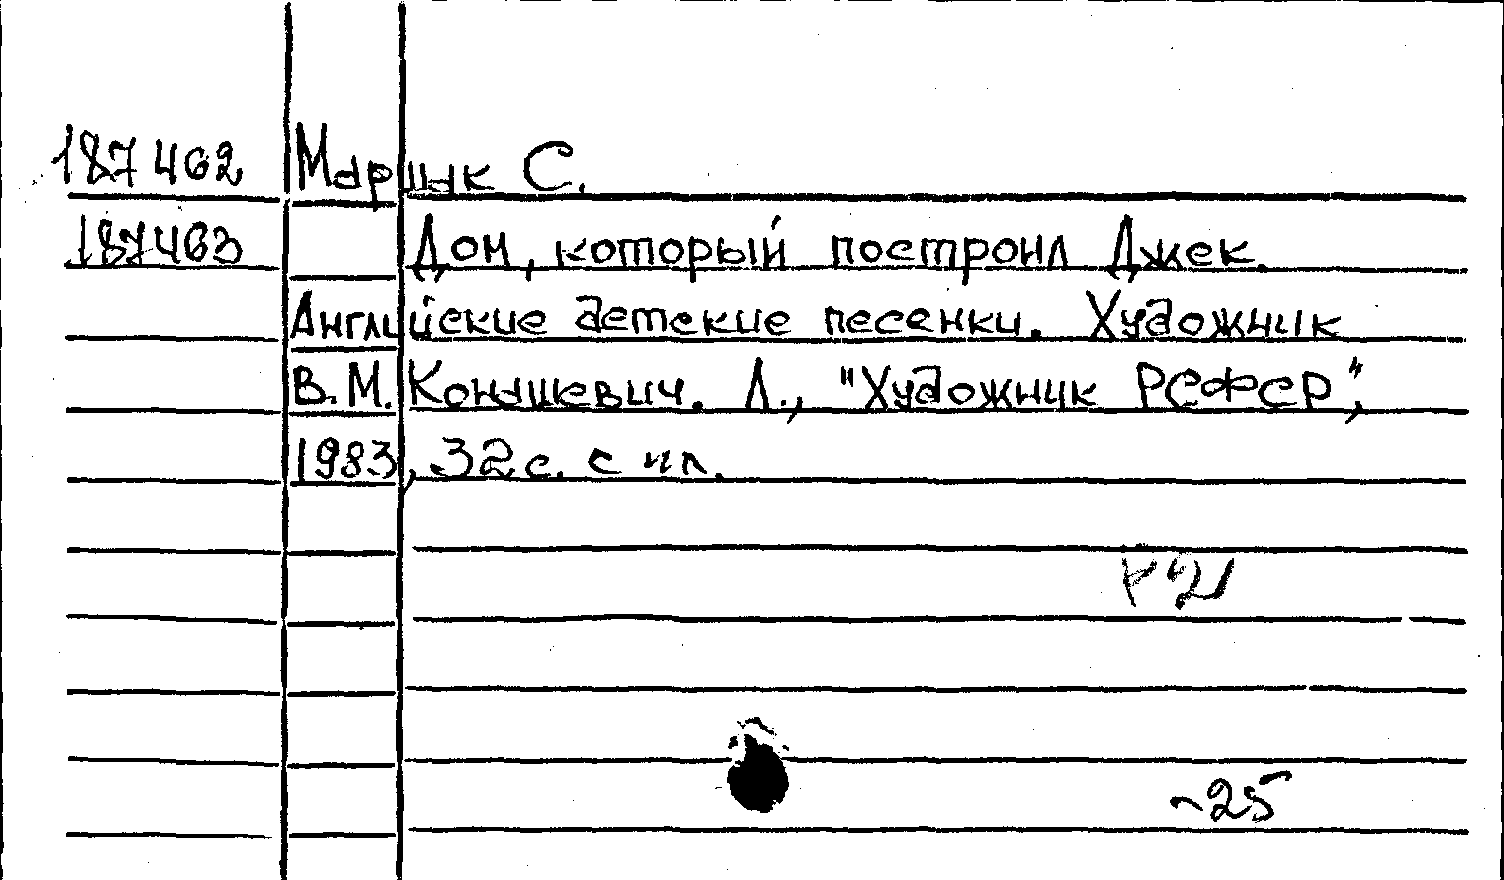 187462 Маршак С.
187463 Дом, который построил Джек.
Английские детские песенки. Художник
В. М. Конашевич. Л., "Художник РСФСР",
1983, 32 с. с ил.
-25